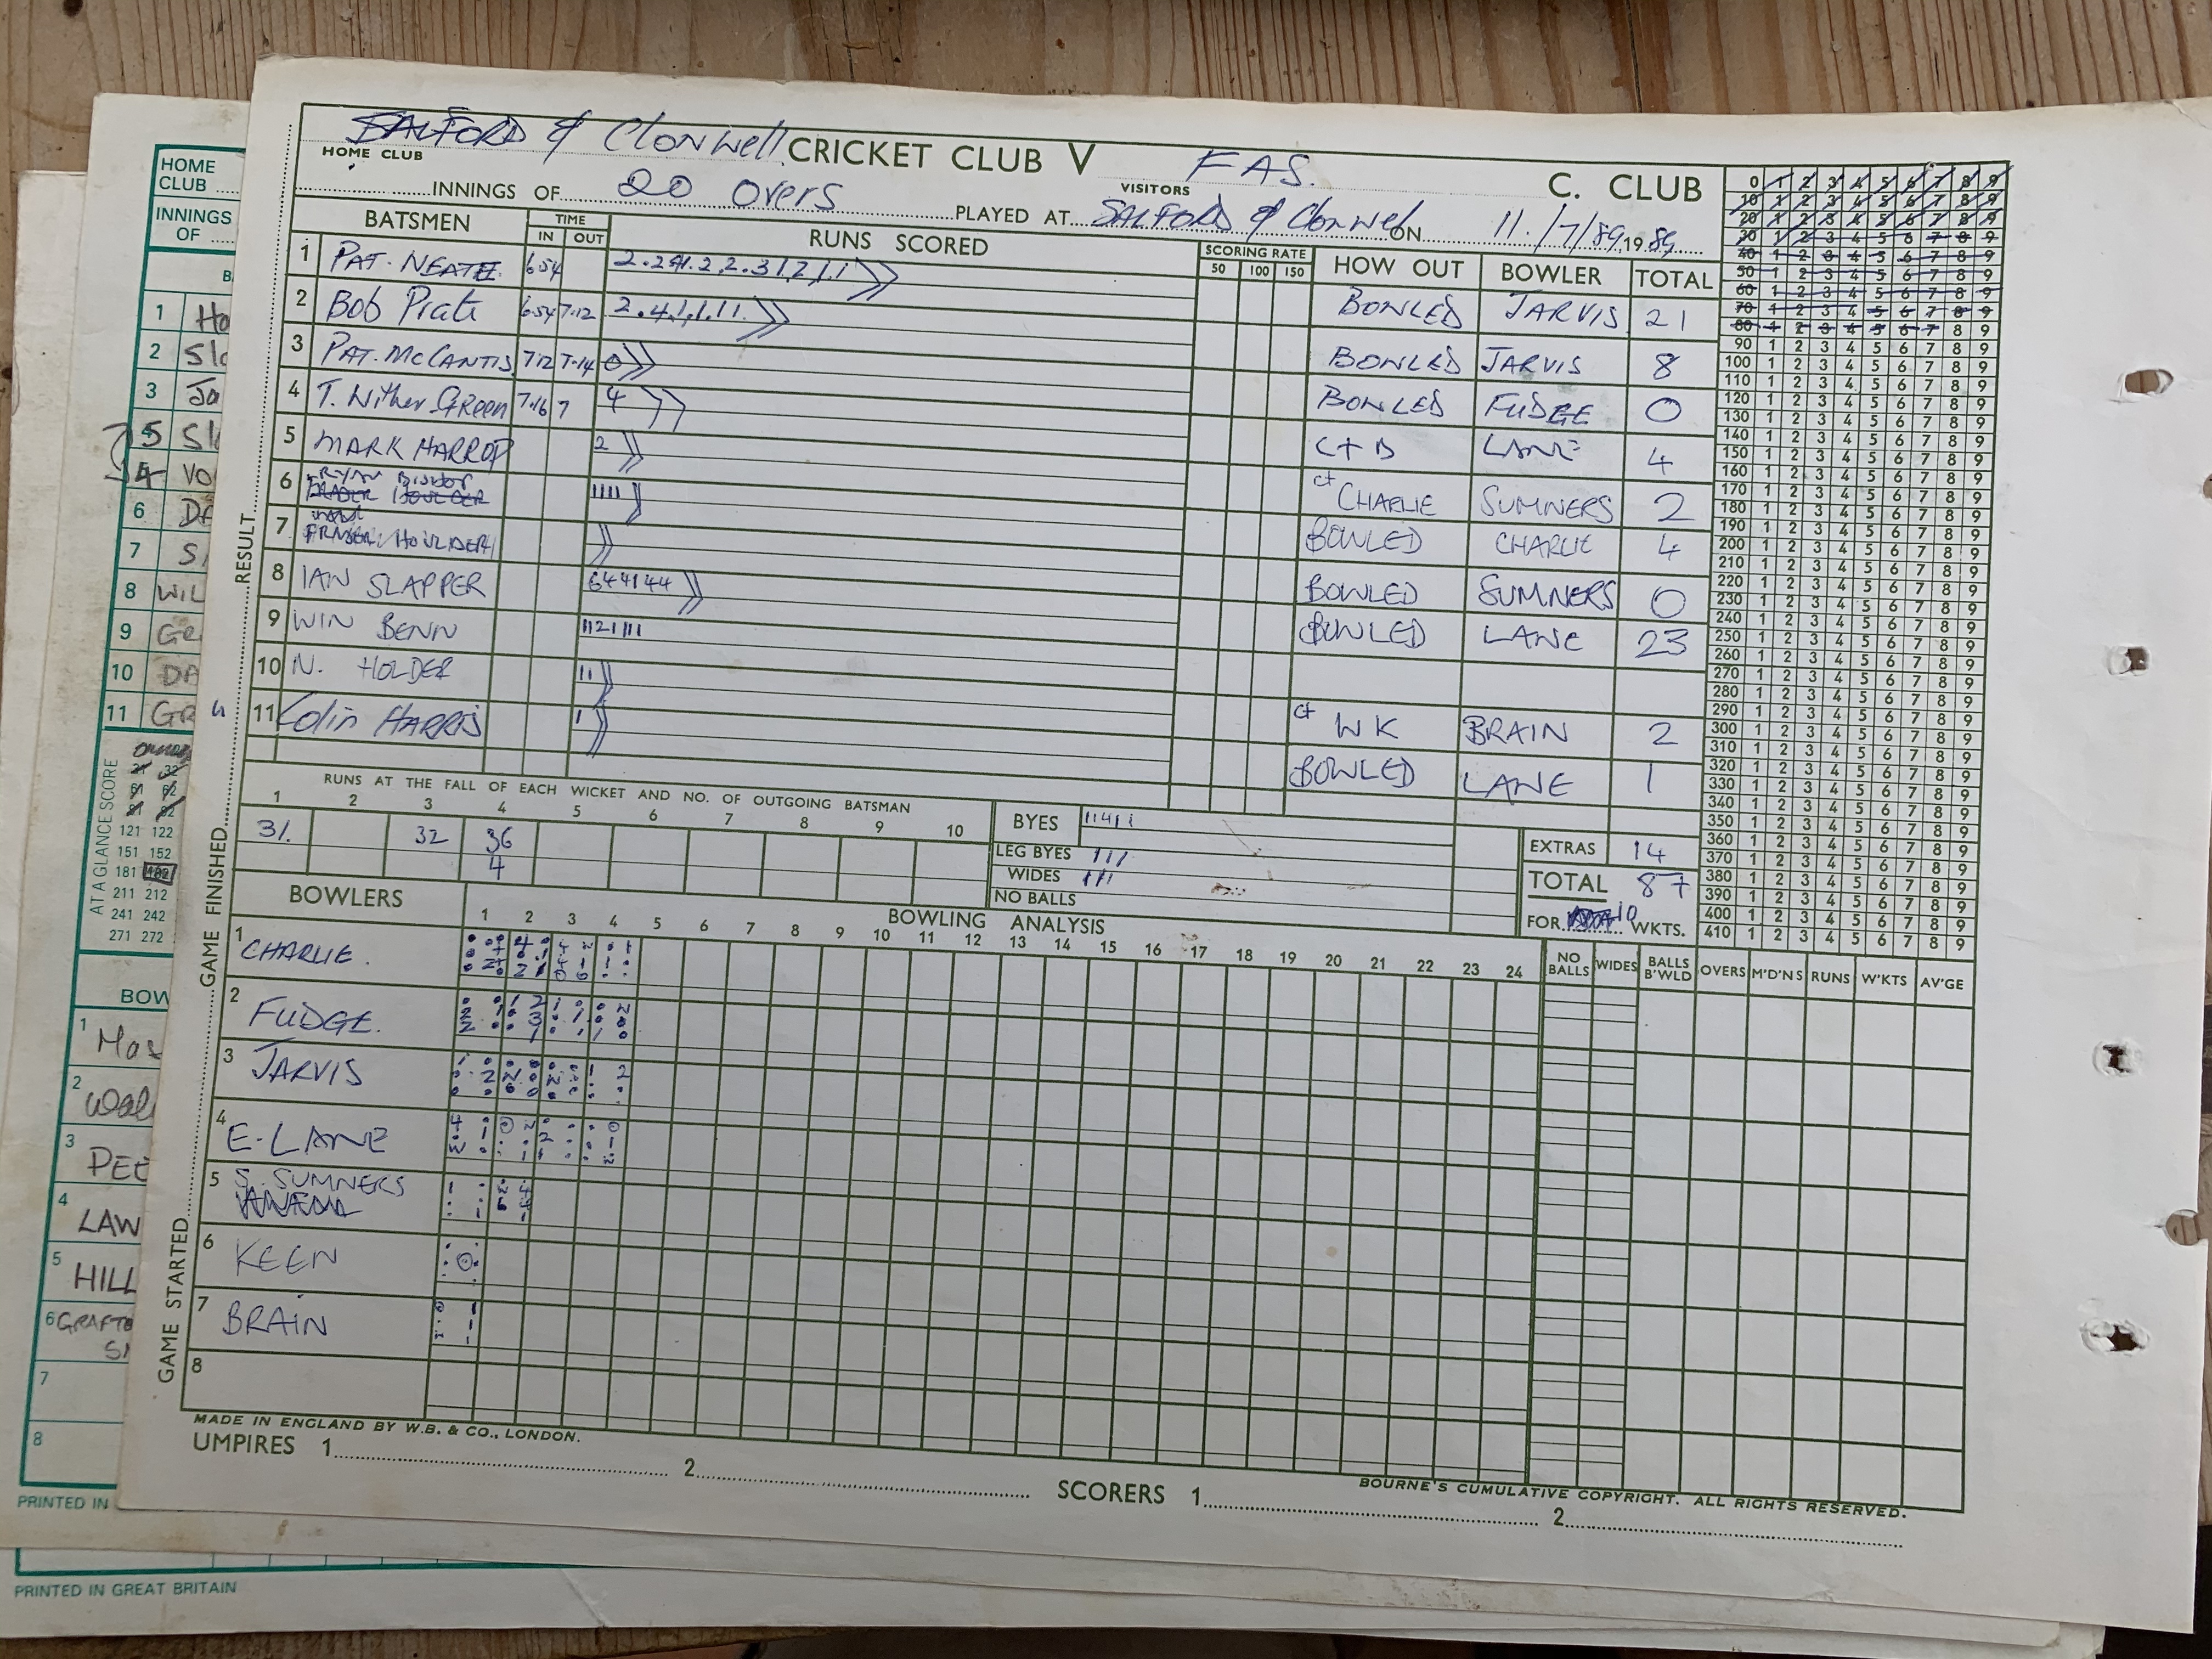 SALFORD & Clonwell CRICKET CLUB V FAS. C. CLUB
HOME CLUB VISITORS
INNINGS OF 20 Overs PLAYED AT SALFORD & Clonwel ON 11./7/89. 19 89
BATSMEN TIME IN OUT RUNS SCORED SCORING RATE 50 100 150 HOW OUT BOWLER TOTAL
1 PAT. NEATE 6.54 BOWLED JARVIS 21
2 Bob Prate 6.54 7.12 2.4.1.1.11. BOWLED JARVIS 8
3 PAT. McCANTIS 7.12 7.14 0 BOWLED FUDGE 0
4 T. Wither Green 7.16 7 4 C + B LANE 4
5 MARK HARROP 2 ct CHARLIE SUMNERS 2
6 1111 BOWLED CHARLIE 4
7 BOWLED SUMNERS 0
8 IAN SLAPPER 644144 BOWLED LANE 23
9 WIN BENN 1121111
10 N. HOLDER 11 ct WK BRAIN 2
11 Colin HARRIS 1 BOWLED LANE 1
RUNS AT THE FALL OF EACH WICKET AND NO. OF OUTGOING BATSMAN
1 2 3 4 5 6 7 8 9 10
31. 32 36
4
BYES 11411
LEG BYES 111
WIDES 111
NO BALLS
EXTRAS 14
TOTAL 87
FOR 10 WKTS.
BOWLERS BOWLING ANALYSIS
1 2 3 4 5 6 7 8 9 10 11 12 13 14 15 16 17 18 19 20 21 22 23 24
NO BALLS WIDES BALLS B'WLD OVERS M'D'NS RUNS W'KTS AV'GE
1 CHARLIE.
2 FUDGE.
3 JARVIS
4 E. LANE
5 S. SUMNERS
6 KEEN
7 BRAIN
8
MADE IN ENGLAND BY W.B. & CO., LONDON.
UMPIRES 1 2 SCORERS 1 2
BOURNE'S CUMULATIVE COPYRIGHT. ALL RIGHTS RESERVED.
RESULT
GAME FINISHED
GAME STARTED
0 1 2 3 4 5 6 7 8 9
10 1 2 3 4 5 6 7 8 9
20 1 2 3 4 5 6 7 8 9
30 1 2 3 4 5 6 7 8 9
40 1 2 3 4 5 6 7 8 9
50 1 2 3 4 5 6 7 8 9
60 1 2 3 4 5 6 7 8 9
70 1 2 3 4 5 6 7 8 9
80 1 2 3 4 5 6 7 8 9
90 1 2 3 4 5 6 7 8 9
100 1 2 3 4 5 6 7 8 9
110 1 2 3 4 5 6 7 8 9
120 1 2 3 4 5 6 7 8 9
130 1 2 3 4 5 6 7 8 9
140 1 2 3 4 5 6 7 8 9
150 1 2 3 4 5 6 7 8 9
160 1 2 3 4 5 6 7 8 9
170 1 2 3 4 5 6 7 8 9
180 1 2 3 4 5 6 7 8 9
190 1 2 3 4 5 6 7 8 9
200 1 2 3 4 5 6 7 8 9
210 1 2 3 4 5 6 7 8 9
220 1 2 3 4 5 6 7 8 9
230 1 2 3 4 5 6 7 8 9
240 1 2 3 4 5 6 7 8 9
250 1 2 3 4 5 6 7 8 9
260 1 2 3 4 5 6 7 8 9
270 1 2 3 4 5 6 7 8 9
280 1 2 3 4 5 6 7 8 9
290 1 2 3 4 5 6 7 8 9
300 1 2 3 4 5 6 7 8 9
310 1 2 3 4 5 6 7 8 9
320 1 2 3 4 5 6 7 8 9
330 1 2 3 4 5 6 7 8 9
340 1 2 3 4 5 6 7 8 9
350 1 2 3 4 5 6 7 8 9
360 1 2 3 4 5 6 7 8 9
370 1 2 3 4 5 6 7 8 9
380 1 2 3 4 5 6 7 8 9
390 1 2 3 4 5 6 7 8 9
400 1 2 3 4 5 6 7 8 9
410 1 2 3 4 5 6 7 8 9
HOME
CLUB
INNINGS
OF
1 Ho
2 Sl
3 Ja
5 Sl
4 VO
6 DA
7 S
8 WIL
9 Gr
10 DA
11 GR
AT A GLANCE SCORE
121 122
151 152
181 182
211 212
241 242
271 272
BOW
1 Mas
2 Wal
3 PEE
4 LAW
5 HILL
6 GRAFTO
7
8
PRINTED IN
PRINTED IN GREAT BRITAIN